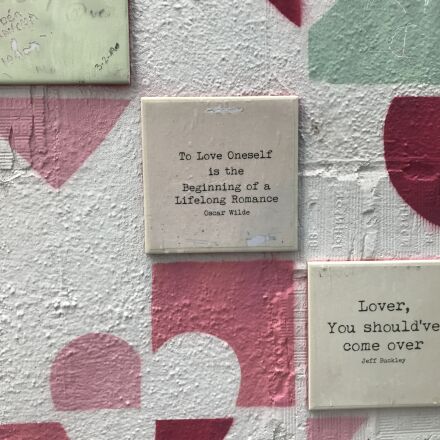 3-2-20
To Love Oneself
is the
Beginning of a
Lifelong Romance
Oscar Wilde
Lover,
You should've
come over
Jeff Buckley